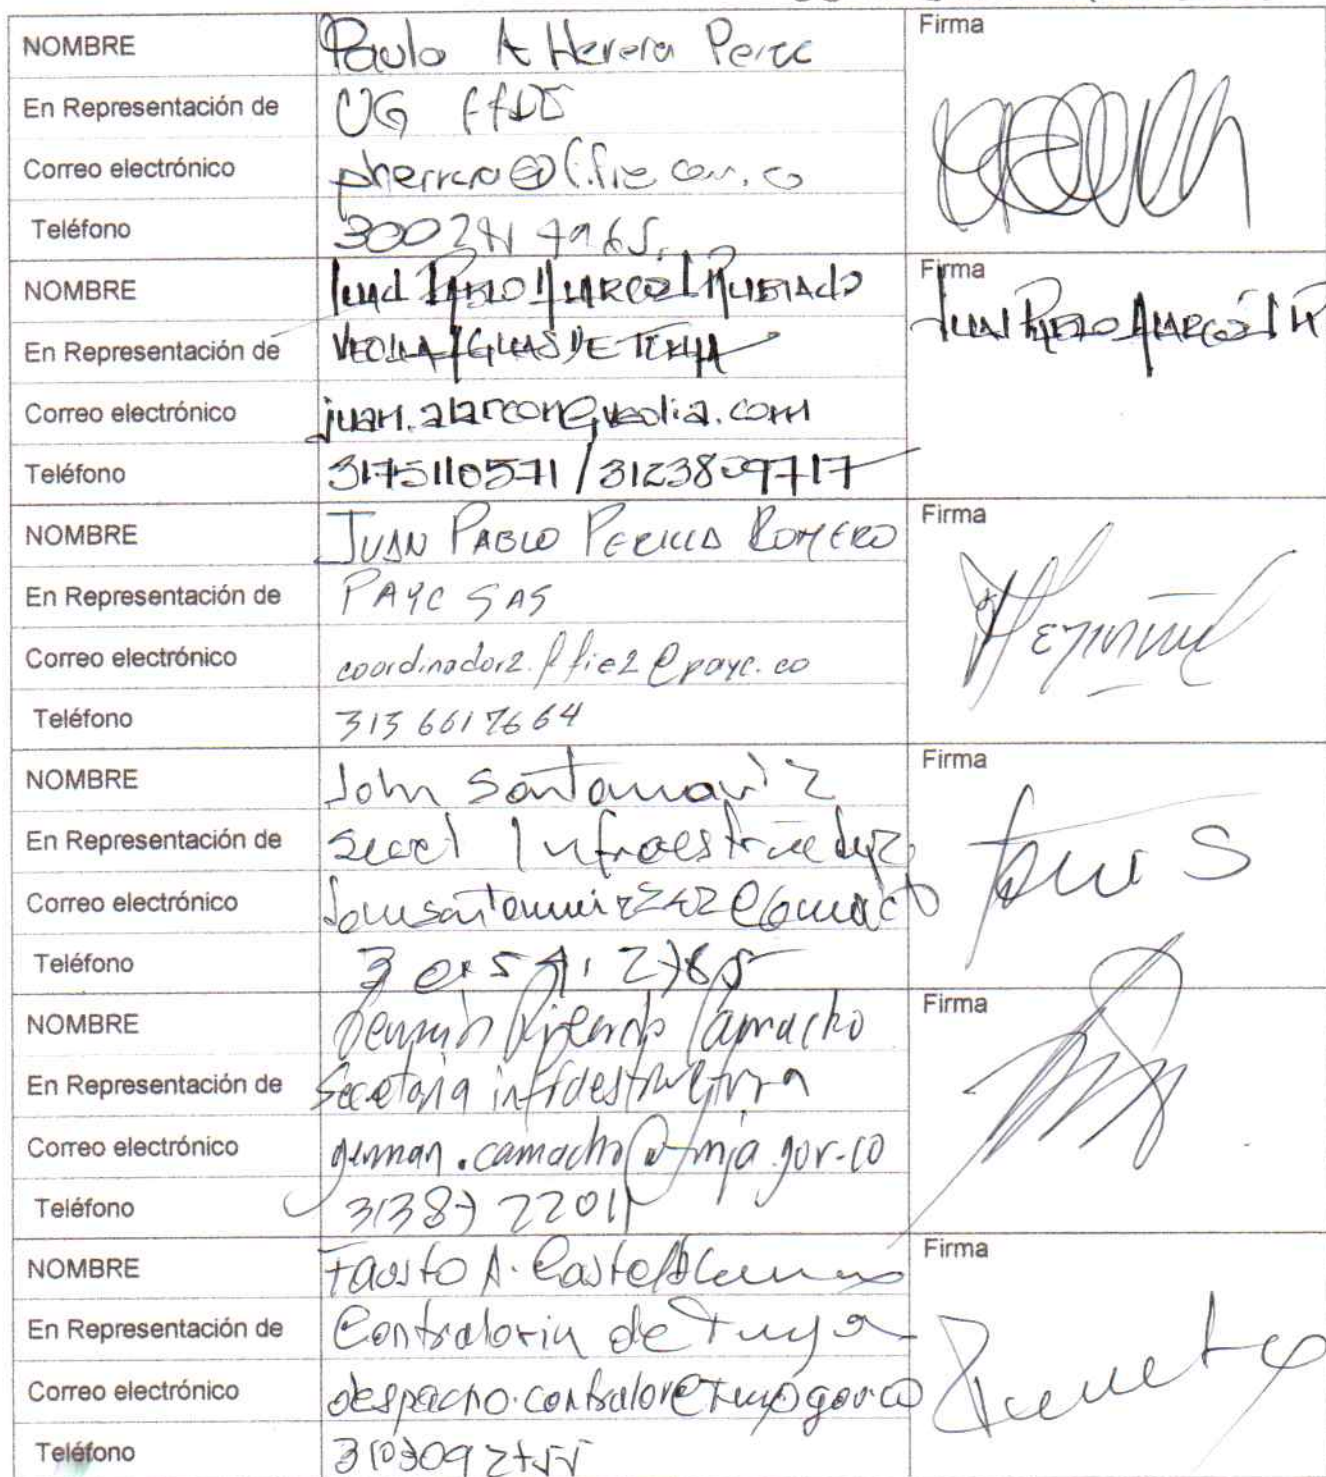 NOMBRE Paulo A Herrera Perez Firma
En Representación de UG FFIE
Correo electrónico pherrera@ffie.com.co
Teléfono 300
NOMBRE Juan Pablo Alarcón Firma
En Representación de VEOLIA AGUAS DE TUNJA Juan Pablo Alarcón
Correo electrónico juan.alarcon@veolia.com
Teléfono 3175110571 / 3123809717
NOMBRE JUAN PABLO PERILLA ROMERO Firma
En Representación de PAYC SAS
Correo electrónico coordinador2.ffie2@payc.co
Teléfono 3136617664
NOMBRE John Santamaria Firma
En Representación de Secret Infraestructura
Correo electrónico
Teléfono
NOMBRE Germán Ricardo Camacho Firma
En Representación de Secretaria infraestructura
Correo electrónico german.camacho@tunja.gov.co
Teléfono 3138722011
NOMBRE Fausto A. Firma
En Representación de Contraloria de Tunja
Correo electrónico despacho.contralor@tunja.gov.co
Teléfono